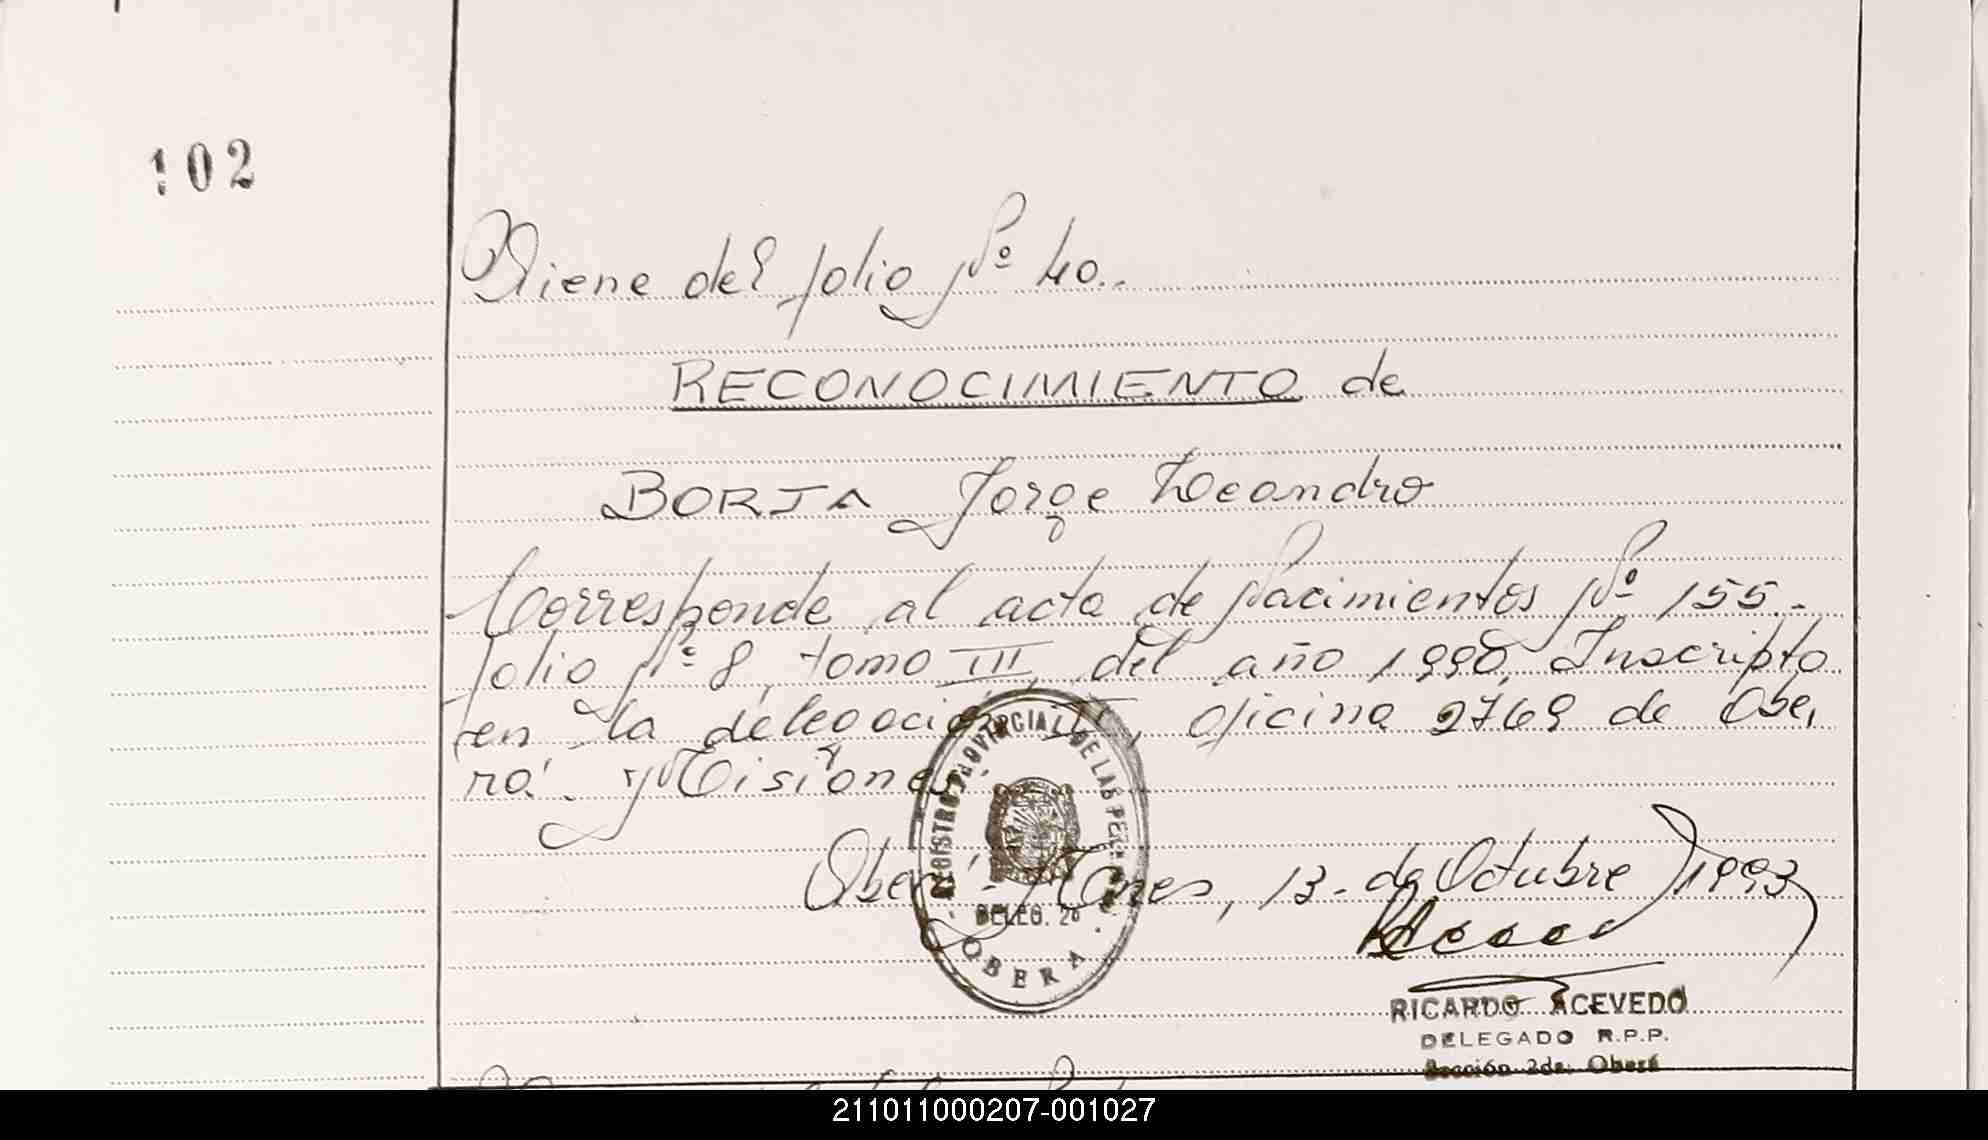 102
Viene del folio Nº 40..
RECONOCIMIENTO de
BORJA Jorge Leandro
Corresponde al acta de Nacimientos Nº 155.-
folio Nº 8, tomo III, del año 1990, Inscripto
en la delegación II, oficina 2769 de Obe,
rá. Misiones.-
Oberá. Mnes, 13.- de Octubre 1993
REGISTRO PROVINCIAL DE LAS PERSONAS
DELEG. 2ª
OBERA
RICARDO ACEVEDO
DELEGADO R.P.P.
Sección 2da. Oberá
211011000207-001027